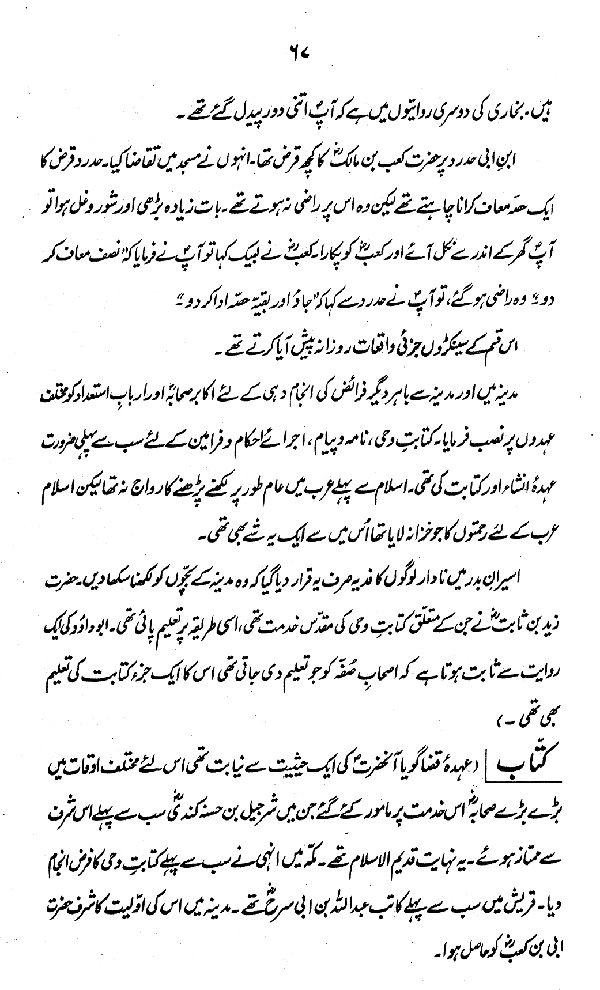 ۶۷
ہیں۔ بخاری کی دوسری روایتوں میں ہے کہ آپؐ اتنی دور پیدل گئے تھے۔
ابن ابی حدرد پر حضرت کعب بن مالکؓ کا کچھ قرض تھا۔ انہوں نے مسجد میں تقاضا کیا۔ حدرد قرض کا
ایک حصہ معاف کرانا چاہتے تھے لیکن وہ اس پر راضی نہ ہوتے تھے۔ بات زیادہ بڑھی اور شور و غل ہوا تو
آپؐ گھر کے اندر سے نکل آئے اور کعبؓ کو پکارا۔ کعبؓ نے لبیک کہا تو آپؐ نے فرمایا کہ "نصف معاف کر
دو" وہ راضی ہو گئے، تو آپؐ نے حدرد سے کہا کہ "جاؤ اور بقیہ حصہ ادا کر دو"
اس قسم کے سینکڑوں جزئی واقعات روزانہ پیش آیا کرتے تھے۔
مدینہ میں اور مدینہ سے باہر دیگر فرائض کی انجام دہی کے لئے اکابر صحابہؓ اور ارباب استعداد کو مختلف
عہدوں پر نصب فرمایا۔ کتابتِ وحی، نامہ و پیام، اجرائے احکام و فرامین کے لئے سب سے پہلی ضرورت
عہدۂ انشاء اور کتابت کی تھی۔ اسلام سے پہلے عرب میں عام طور پر لکھنے پڑھنے کا رواج نہ تھا لیکن اسلام
عرب کے لئے رحمتوں کا جو خزانہ لایا تھا اُس میں سے ایک یہ شے بھی تھی۔
اسیرانِ بدر میں نادار لوگوں کا فدیہ صرف یہ قرار دیا گیا کہ وہ مدینہ کے بچّوں کو لکھنا سکھا دیں۔ حضرت
زید بن ثابتؓ نے جن کے متعلق کتابتِ وحی کی مقدّس خدمت تھی، اسی طریقہ پر تعلیم پائی تھی۔ ابوداؤد کی ایک
روایت سے ثابت ہوتا ہے کہ اصحابِ صُفّہ کو جو تعلیم دی جاتی تھی اس کا ایک جزء کتابت کی تعلیم
بھی تھی۔)
کتّاب (عہدۂ قضا گویا آنحضرتؐ کی ایک حیثیت سے نیابت تھی اس لئے مختلف اوقات میں
بڑے بڑے صحابہؓ اس خدمت پر مامور کئے گئے جن میں شرجیل بن حسنہ کندیؓ سب سے پہلے اس شرف
سے ممتاز ہوئے۔ یہ نہایت قدیم الاسلام تھے۔ مکہ میں انہی نے سب سے پہلے کتابت وحی کا فرض انجام
دیا۔ قریش میں سب سے پہلے کاتب عبداللہ بن ابی سرحؓ تھے۔ مدینہ میں اس کی اوّلیت کا شرف حضرت
ابی بن کعبؓ کو حاصل ہوا۔